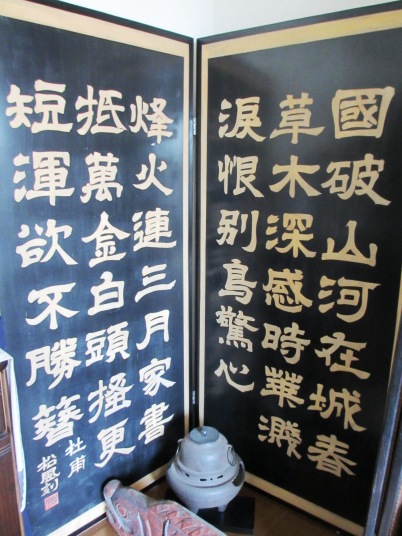 國破山河在城春
草木深感時華濺
淚恨別鳥驚心
烽火連三月家書
抵萬金白頭搔更
短渾欲不勝簪
杜甫